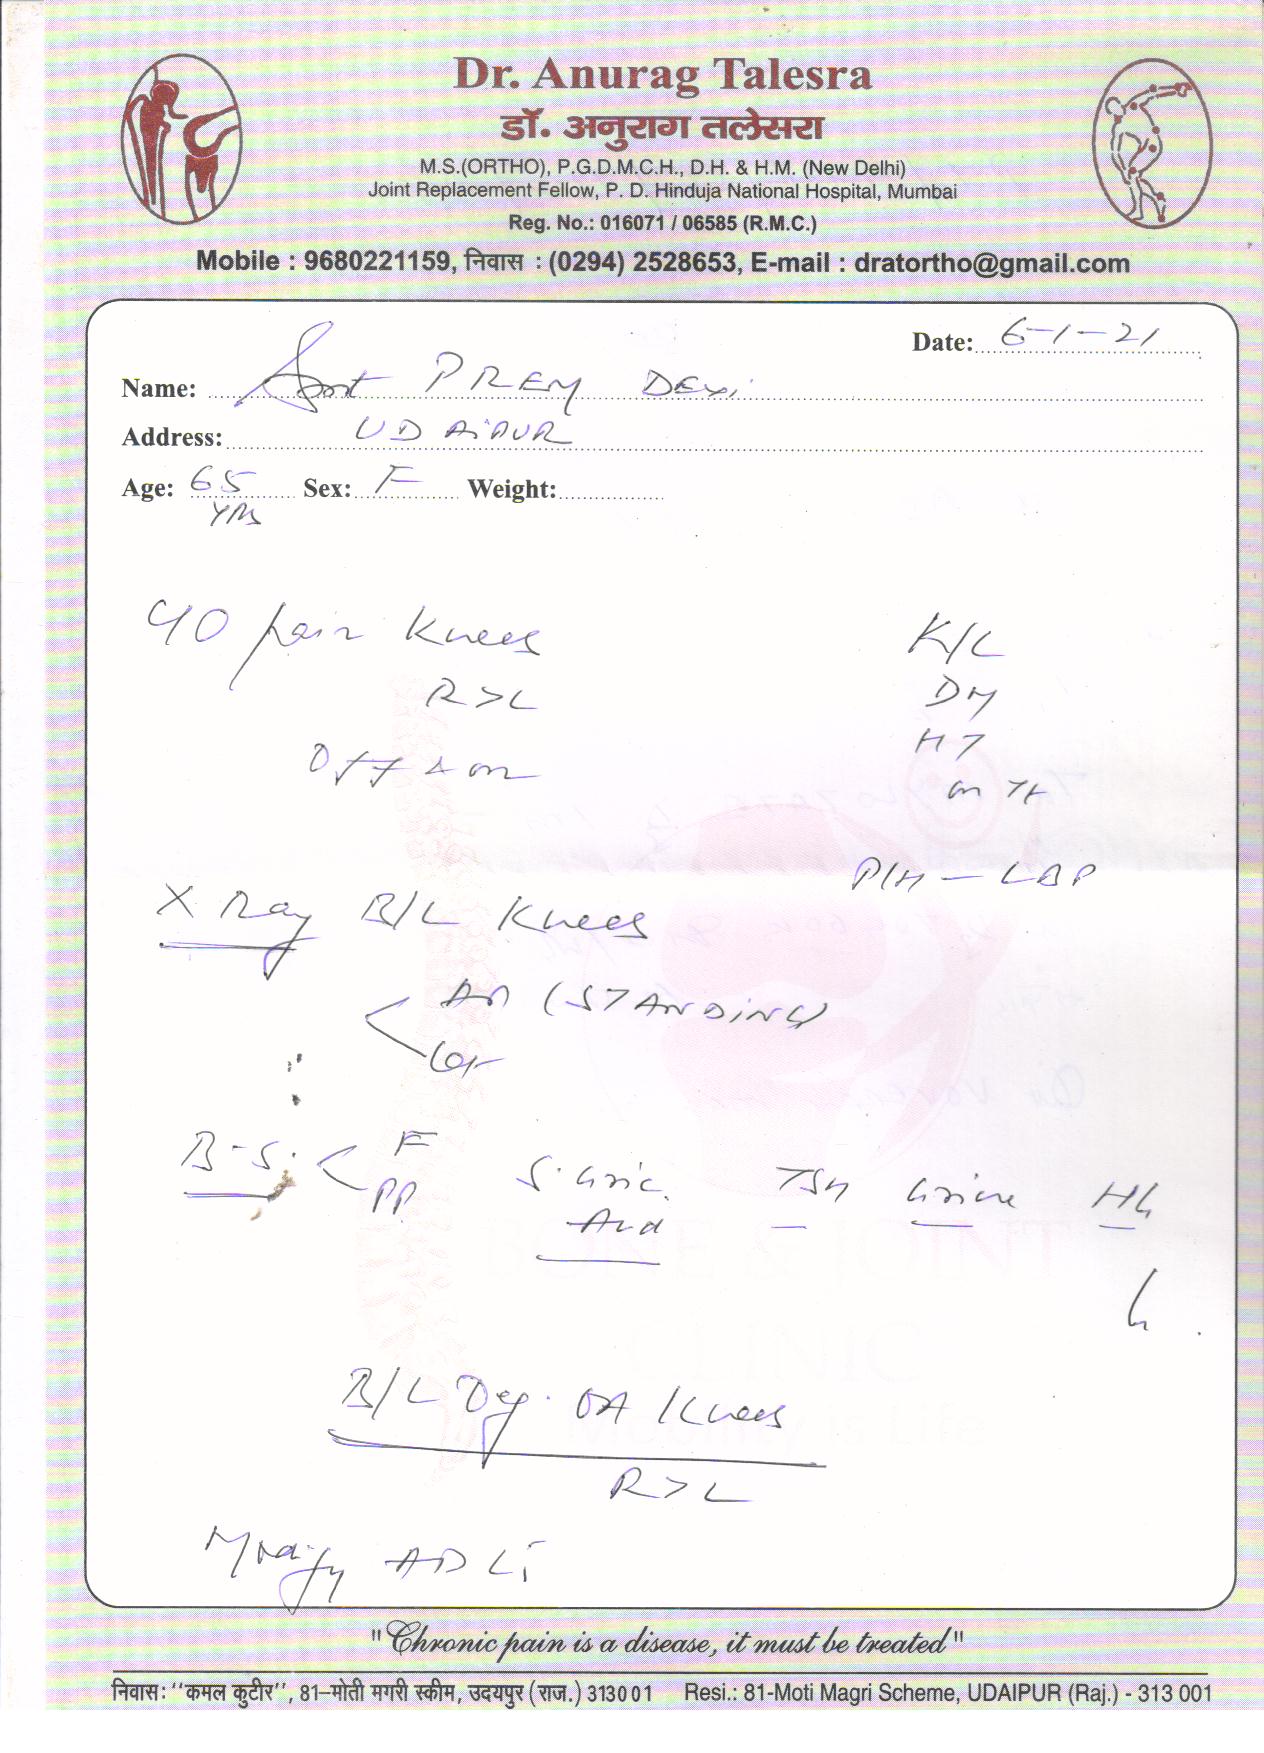 Dr. Anurag Talesra
डॉ. अनुराग तलेसरा
M.S.(ORTHO), P.G.D.M.C.H., D.H. & H.M. (New Delhi)
Joint Replacement Fellow, P. D. Hinduja National Hospital, Mumbai
Reg. No.: 016071 / 06585 (R.M.C.)
Mobile : 9680221159, निवास : (0294) 2528653, E-mail : dratortho@gmail.com
Date: 6-1-21
Name: Smt PREM DEVi
Address: UDAiPUR
Age: 65 yrs Sex: F Weight:
40 pain Knees K/C
R>L DM
HT
Off & on on Tt
P/H - LBP
X Ray B/L Knees
AP (STANDiNG)
Lat
B-S. F
PP S. Uric Acid TSH Urine Hb
B/L Deg. OA Knees
R>L
Modify ADL
"Chronic pain is a disease, it must be treated"
निवास: "कमल कुटीर", 81-मोती मगरी स्कीम, उदयपुर (राज.) 313001 Resi.: 81-Moti Magri Scheme, UDAIPUR (Raj.) - 313 001